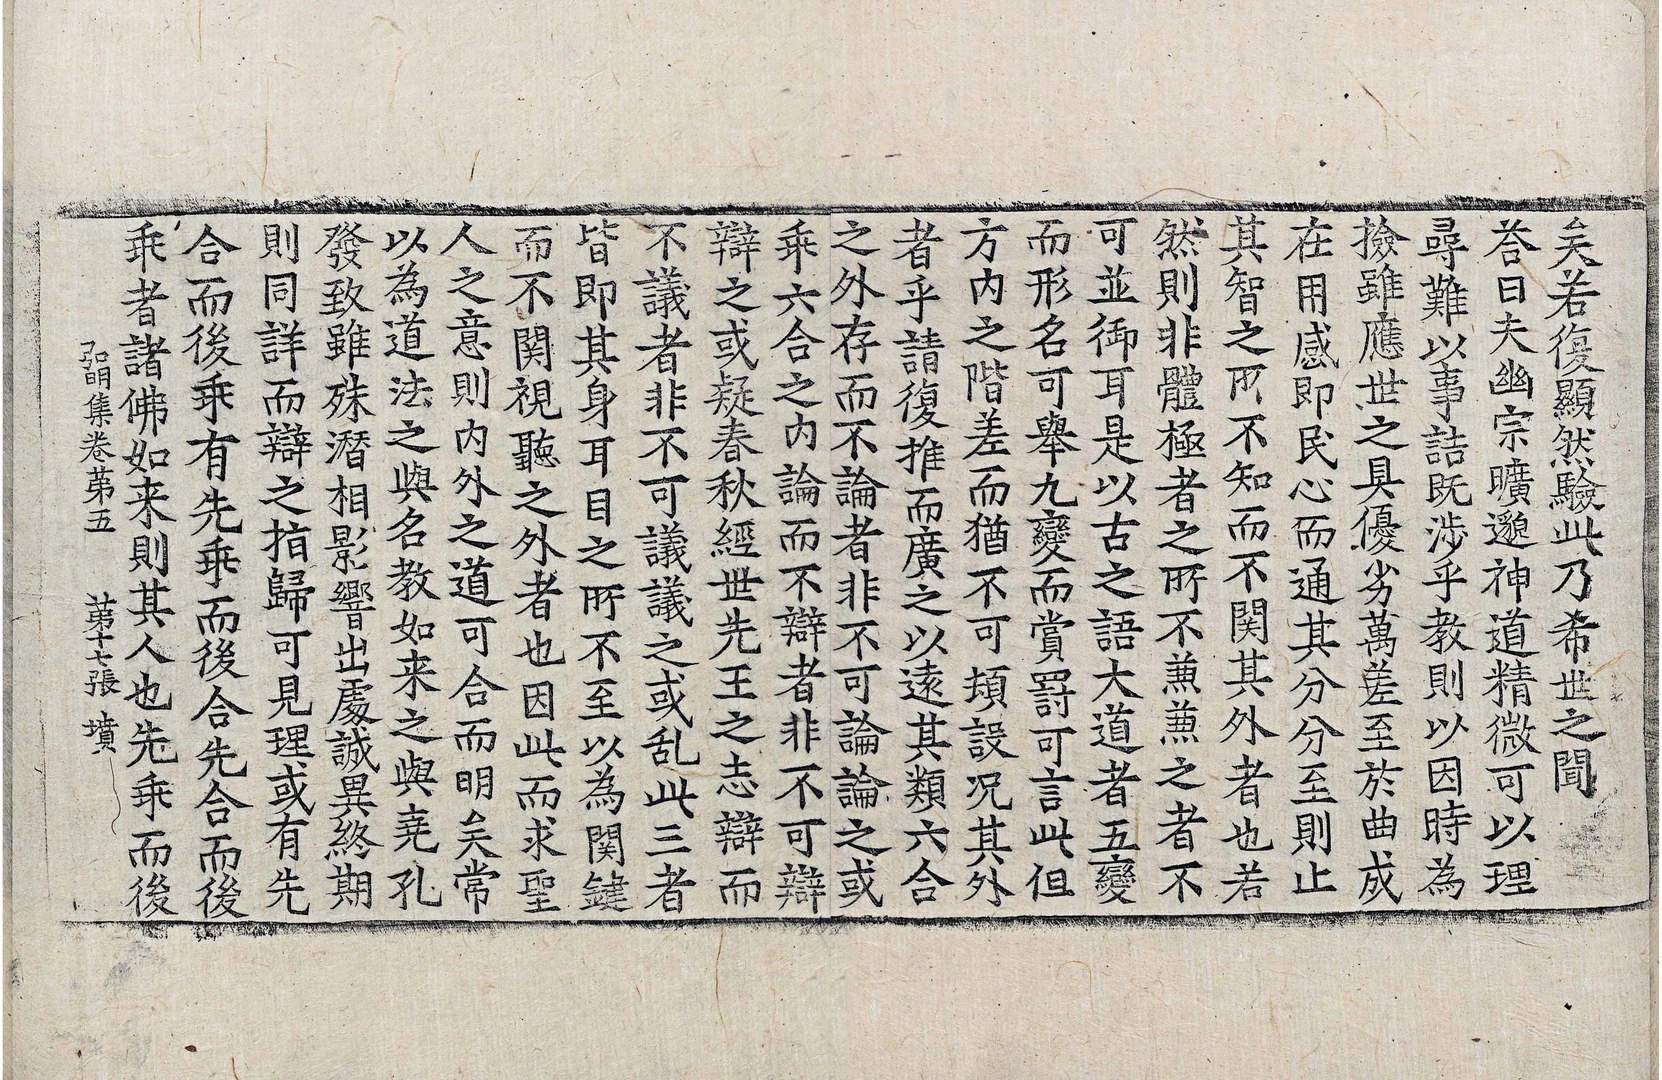 矣若復顯然驗此乃希世之聞
荅曰夫幽宗曠邈神道精微可以理
尋難以事詰既涉乎教則以因時為
撿雖應世之具優劣萬差至於曲成
在用感即民心而通其分分至則止
其智之所不知而不関其外者也若
然則非體極者之所不兼兼之者不
可並御耳是以古之語大道者五變
而形名可舉九變而賞罸可言此但
方内之階差而猶不可頓設况其外
者乎請復推而廣之以遠其類六合
之外存而不論者非不可論論之或
乖六合之内論而不辯者非不可辯
辯之或疑春秋經世先王之志辯而
不議者非不可議議之或乱此三者
皆即其身耳目之所不至以為関鍵
而不関視聽之外者也因此而求聖
人之意則内外之道可合而明矣常
以為道法之與名教如来之與堯孔
發致雖殊潛相影響出處誠異終期
則同詳而辯之指歸可見理或有先
合而後乖有先乖而後合先合而後
乖者諸佛如来則其人也先乖而後
弘明集卷第五　第十七張　墳